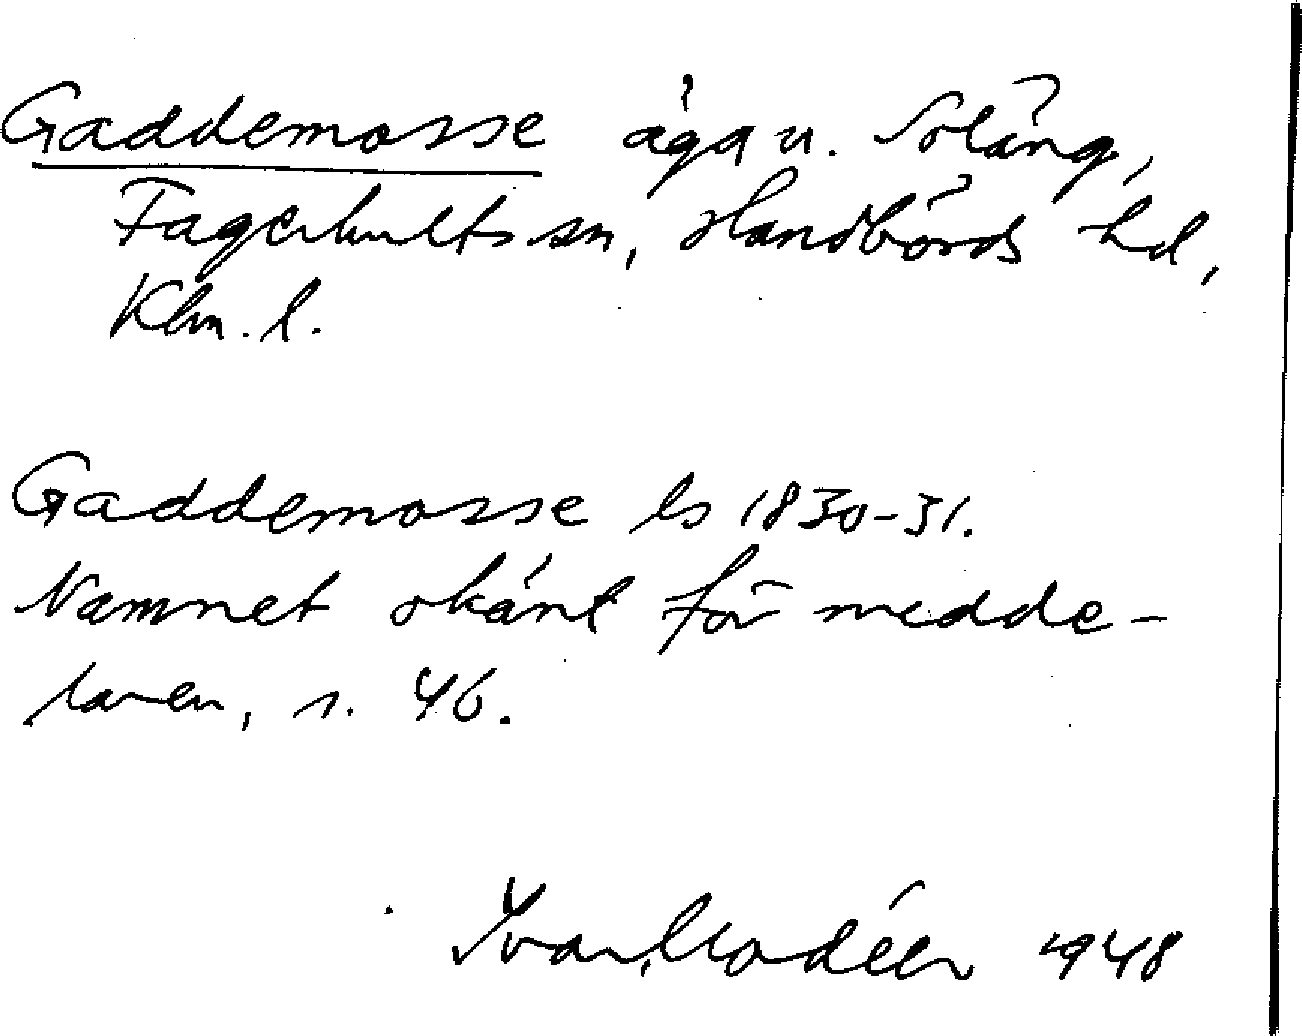 Gaddemosse äga u. Släng,
Fagerhults sn, Handbörds hd,
Klm. l.
Gaddemosse ls 1830-31.
Namnet okänt för medde-
laren, s. 46.
Ivar Modéer 1948